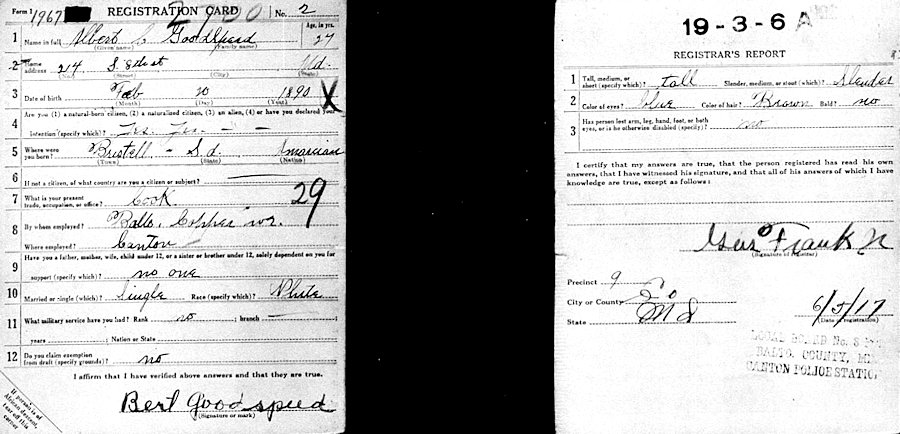 Form 1 1967 REGISTRATION CARD 2900 No. 2
1 Name in full Albert C Goodspeed Age, in yrs. 27
(Given name) (Family name)
2 Home address 214 S. 8th st Md.
(No.) (Street) (City) (State)
3 Date of birth Feb 20 1890 X
(Month) (Day) (Year)
4 Are you (1) a natural-born citizen, (2) a naturalized citizen, (3) an alien, (4) or have you declared your
intention (specify which)? Yes. Yes. - -
5 Where were you born? Bristell - S.d. Amarcian
(Town) (State) (Nation)
6 If not a citizen, of what country are you a citizen or subject?
7 What is your present trade, occupation, or office? Cook 29
8 By whom employed? Balto. Copper
Where employed? Canton
9 Have you a father, mother, wife, child under 12, or a sister or brother under 12, solely dependent on you for
support (specify which)? no one
10 Married or single (which)? Single Race (specify which)? White
11 What military service have you had? Rank no ; branch
years ; Nation or State
12 Do you claim exemption from draft (specify grounds)? no
I affirm that I have verified above answers and that they are true.
Bert Goodspeed
(Signature or mark)
If person is of
African descent,
tear off this
corner
19-3-6 A
REGISTRAR'S REPORT
1 Tall, medium, or short (specify which)? tall Slender, medium, or stout (which)? Slender
2 Color of eyes? blue Color of hair? Brown Bald? no
3 Has person lost arm, leg, hand, foot, or both eyes, or is he otherwise disabled (specify)? no
I certify that my answers are true, that the person registered has read his own
answers, that I have witnessed his signature, and that all of his answers of which I have
knowledge are true, except as follows:
Geo Frank Jr
(Signature of registrar)
Precinct 9
City or County Co
State Md 6/5/17
(Date of registration)
LOCAL BOARD No. 3
BALTO. COUNTY, MD.
CANTON POLICE STATION